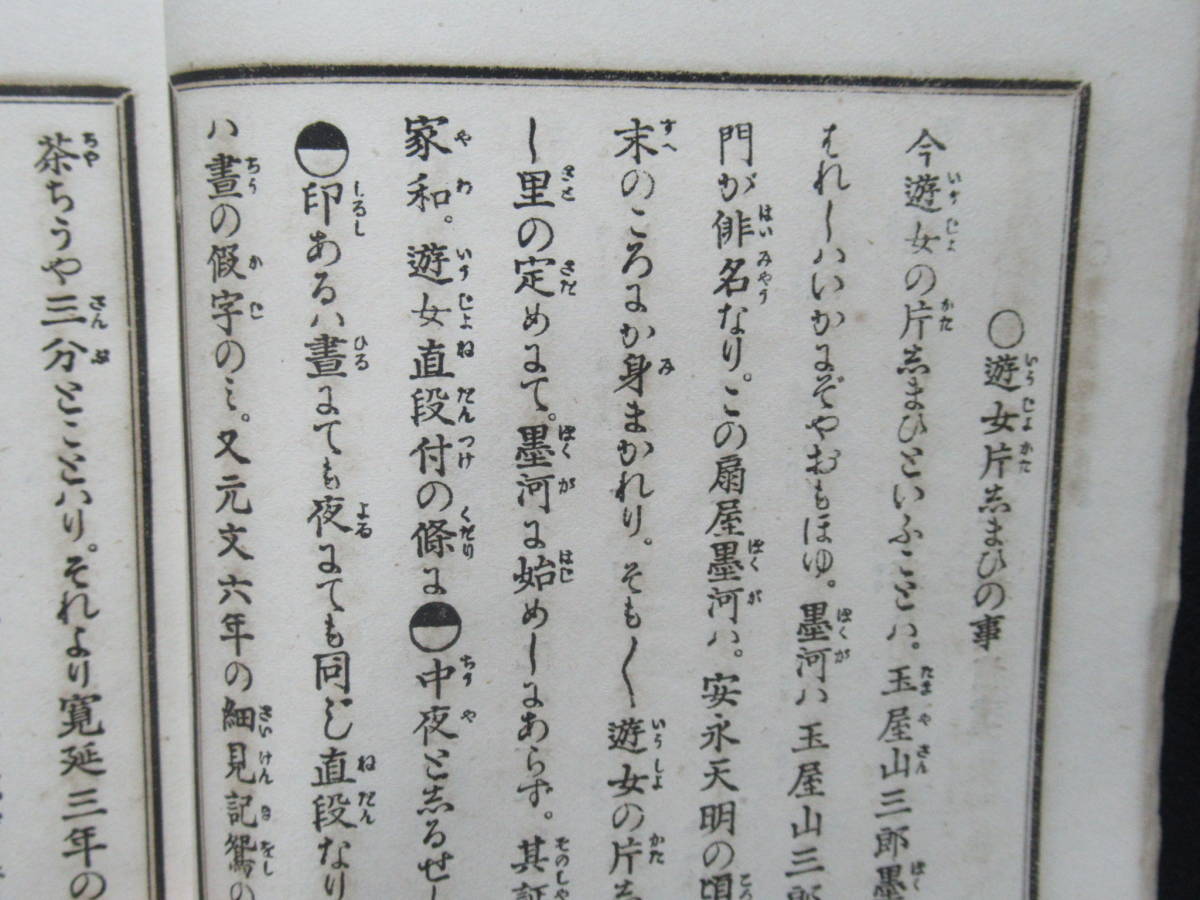 ○遊女片志まひの事
今遊女の片志まひといふことハ。玉屋山三郎墨
れしハいかにぞやおもほゆ。墨河ハ玉屋山三郎
門が俳名なり。この扇屋墨河ハ。安永天明の頃
末のころにか身まかれり。そも〳〵遊女の片志
し里の定めにて。墨河に始めしにあらず。其証
家和。遊女直段付の條に◓中夜と志るせし
◓印あるハ晝にても夜にても同じ直段なり
ハ晝の假字のミ。又元文六年の細見記鴛の
茶ちうや三分とことハり。それより寛延三年の